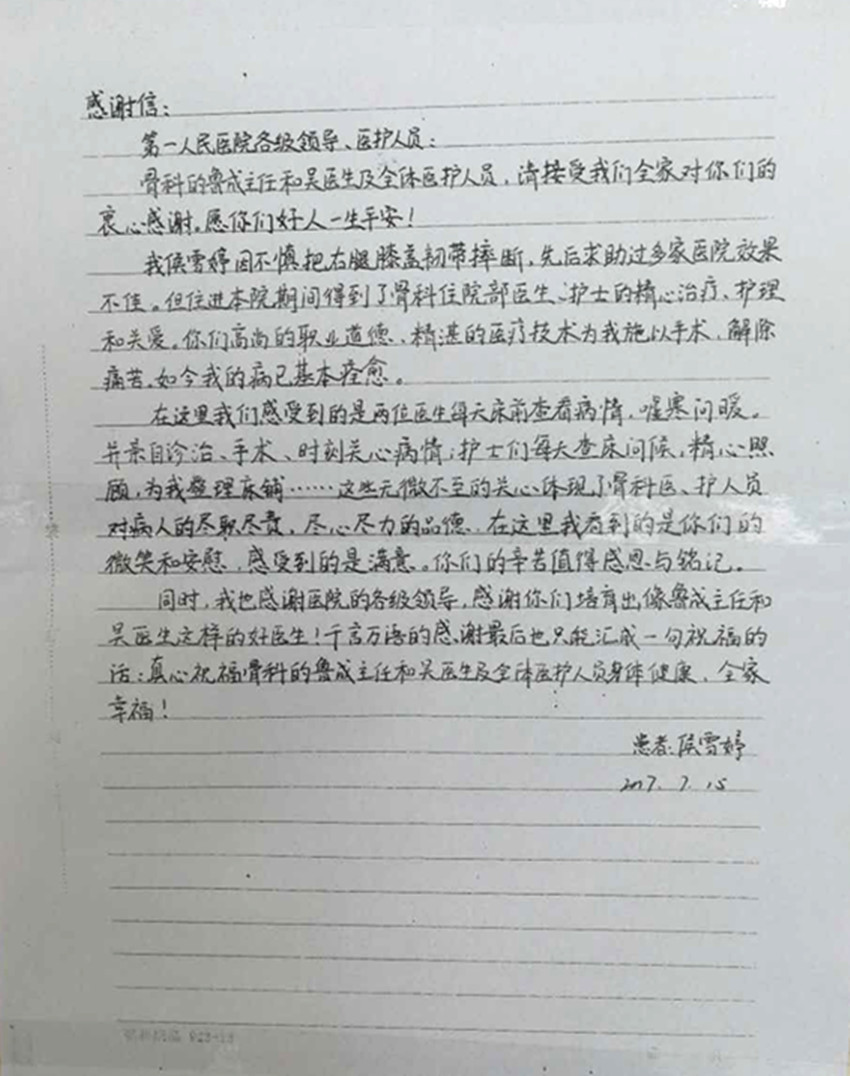 感谢信：
第一人民医院各级领导、医护人员：
骨科的鲁成主任和吴医生及全体医护人员，请接受我们全家对你们的
衷心感谢。愿你们好人一生平安！
我侯雪婷因不慎把右腿膝盖韧带摔断，先后求助过多家医院效果
不佳。但住进本院期间得到了骨科住院部医生、护士的精心治疗、护理
和关爱。你们高尚的职业道德、精湛的医疗技术为我施以手术，解除
痛苦。如今我的病已基本痊愈。
在这里我们感受到的是两位医生每天床前查看病情，嘘寒问暖。
并亲自诊治、手术、时刻关心病情；护士们每天查床问候，精心照
顾，为我整理床铺……这些无微不至的关心体现了骨科医、护人员
对病人的尽职尽责，尽心尽力的品德。在这里我看到的是你们的
微笑和安慰，感受到的是满意。你们的辛苦值得感恩与铭记。
同时，我也感谢医院的各级领导，感谢你们培育出像鲁成主任和
吴医生这样的好医生！千言万语的感谢最后也只能汇成一句祝福的
话：真心祝福骨科的鲁成主任和吴医生及全体医护人员身体健康，全家
幸福！
患者：侯雪婷
2017.7.15